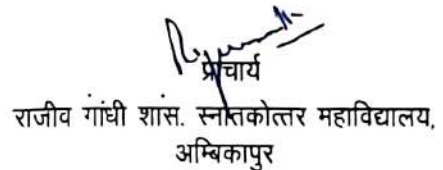 प्राचार्य
राजीव गांधी शांस. स्नातकोत्तर महाविद्यालय,
अम्बिकापुर